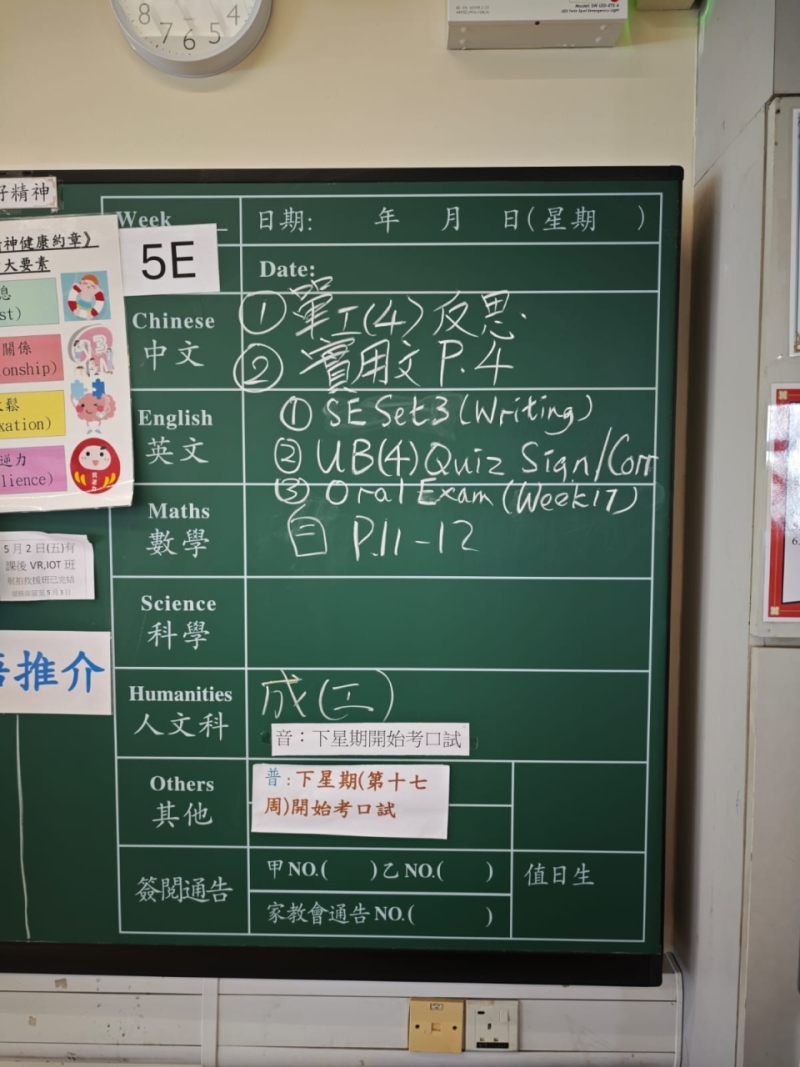 8 7 6 5 4
Model: SW-LED-2TS A
LED Twin Spot Emergency Light
好精神
神健康約章》
大要素
息
st)
關係
ionship)
鬆
xation)
逆力
lience)
5月2日(五)有
課後 VR,IOT 班
語推介
Week
5E
日期: 年 月 日(星期 )
Date:
Chinese
中文
① 單工(4) 反思.
② 實用文 P.4
English
英文
① SE Set3 (Writing)
② UB(4) Quiz Sign/Corr
③ Oral Exam (Week17)
Maths
數學
P.11-12
Science
科學
Humanities
人文科
成(工)
音：下星期開始考口試
Others
其他
普：下星期(第十七
周)開始考口試
簽閱通告
甲 NO.( ) 乙 NO.( )
家教會通告 NO.( )
值日生